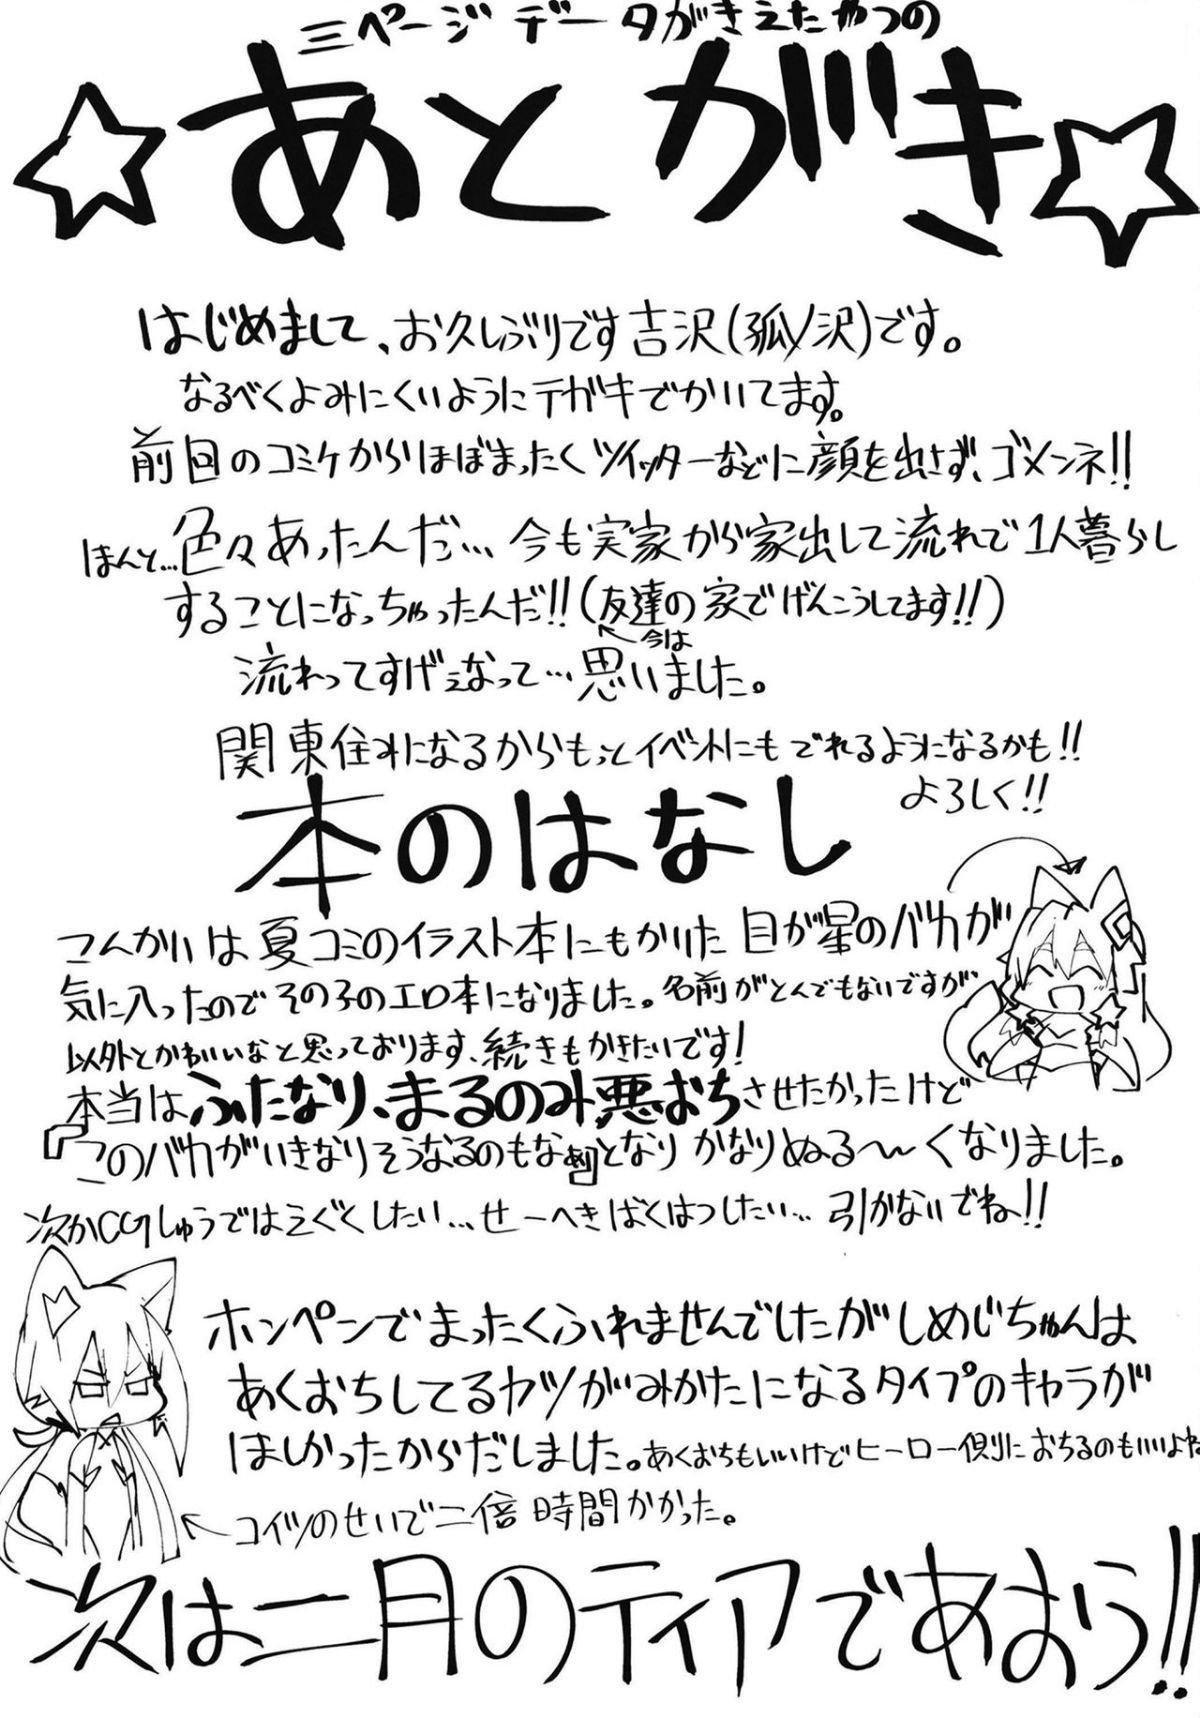 三ページデータがきえたやつの
☆あとがき☆
はじめまして、お久しぶりです吉沢(狐ノ沢)です。
なるべくよみにくいようにテガキでかいてます。
前回のコミケからほぼまったくツイッターなどに顔を出さず、ゴメンネ!!
ほんと…色々あったんだ…今も実家から家出して流れで1人暮らし
することになっちゃったんだ!!(友達の家でげんこうしてます!!)
←今は
流れってすげぇなって…思いました。
関東住みになるからもっとイベントにもでれるようになるかも!!
よろしく!!
本のはなし
こんかいは夏コミのイラスト本にもかいた目が星のバカが
気に入ったのでその子のエロ本になりました。名前がとんでもないですが
以外とかわいいなと思っております、続きもかきたいです!
本当はふたなり、まるのみ悪おちさせたかったけど
『このバカがいきなりそうなるのもなぁ』となりかなりぬる～くなりました。
次かCGしゅうではえぐくしたい…せーへきばくはつしたい…引かないでね!!
ホンペンでまったくふれませんでしたがしめじちゃんは
あくおちしてるヤツがみかたになるタイプのキャラが
ほしかったからだしました。あくおちもいいけどヒーロー側におちるのもいいよね
←コイツのせいで二倍時間かかった。
次は二月のティアであおう!!